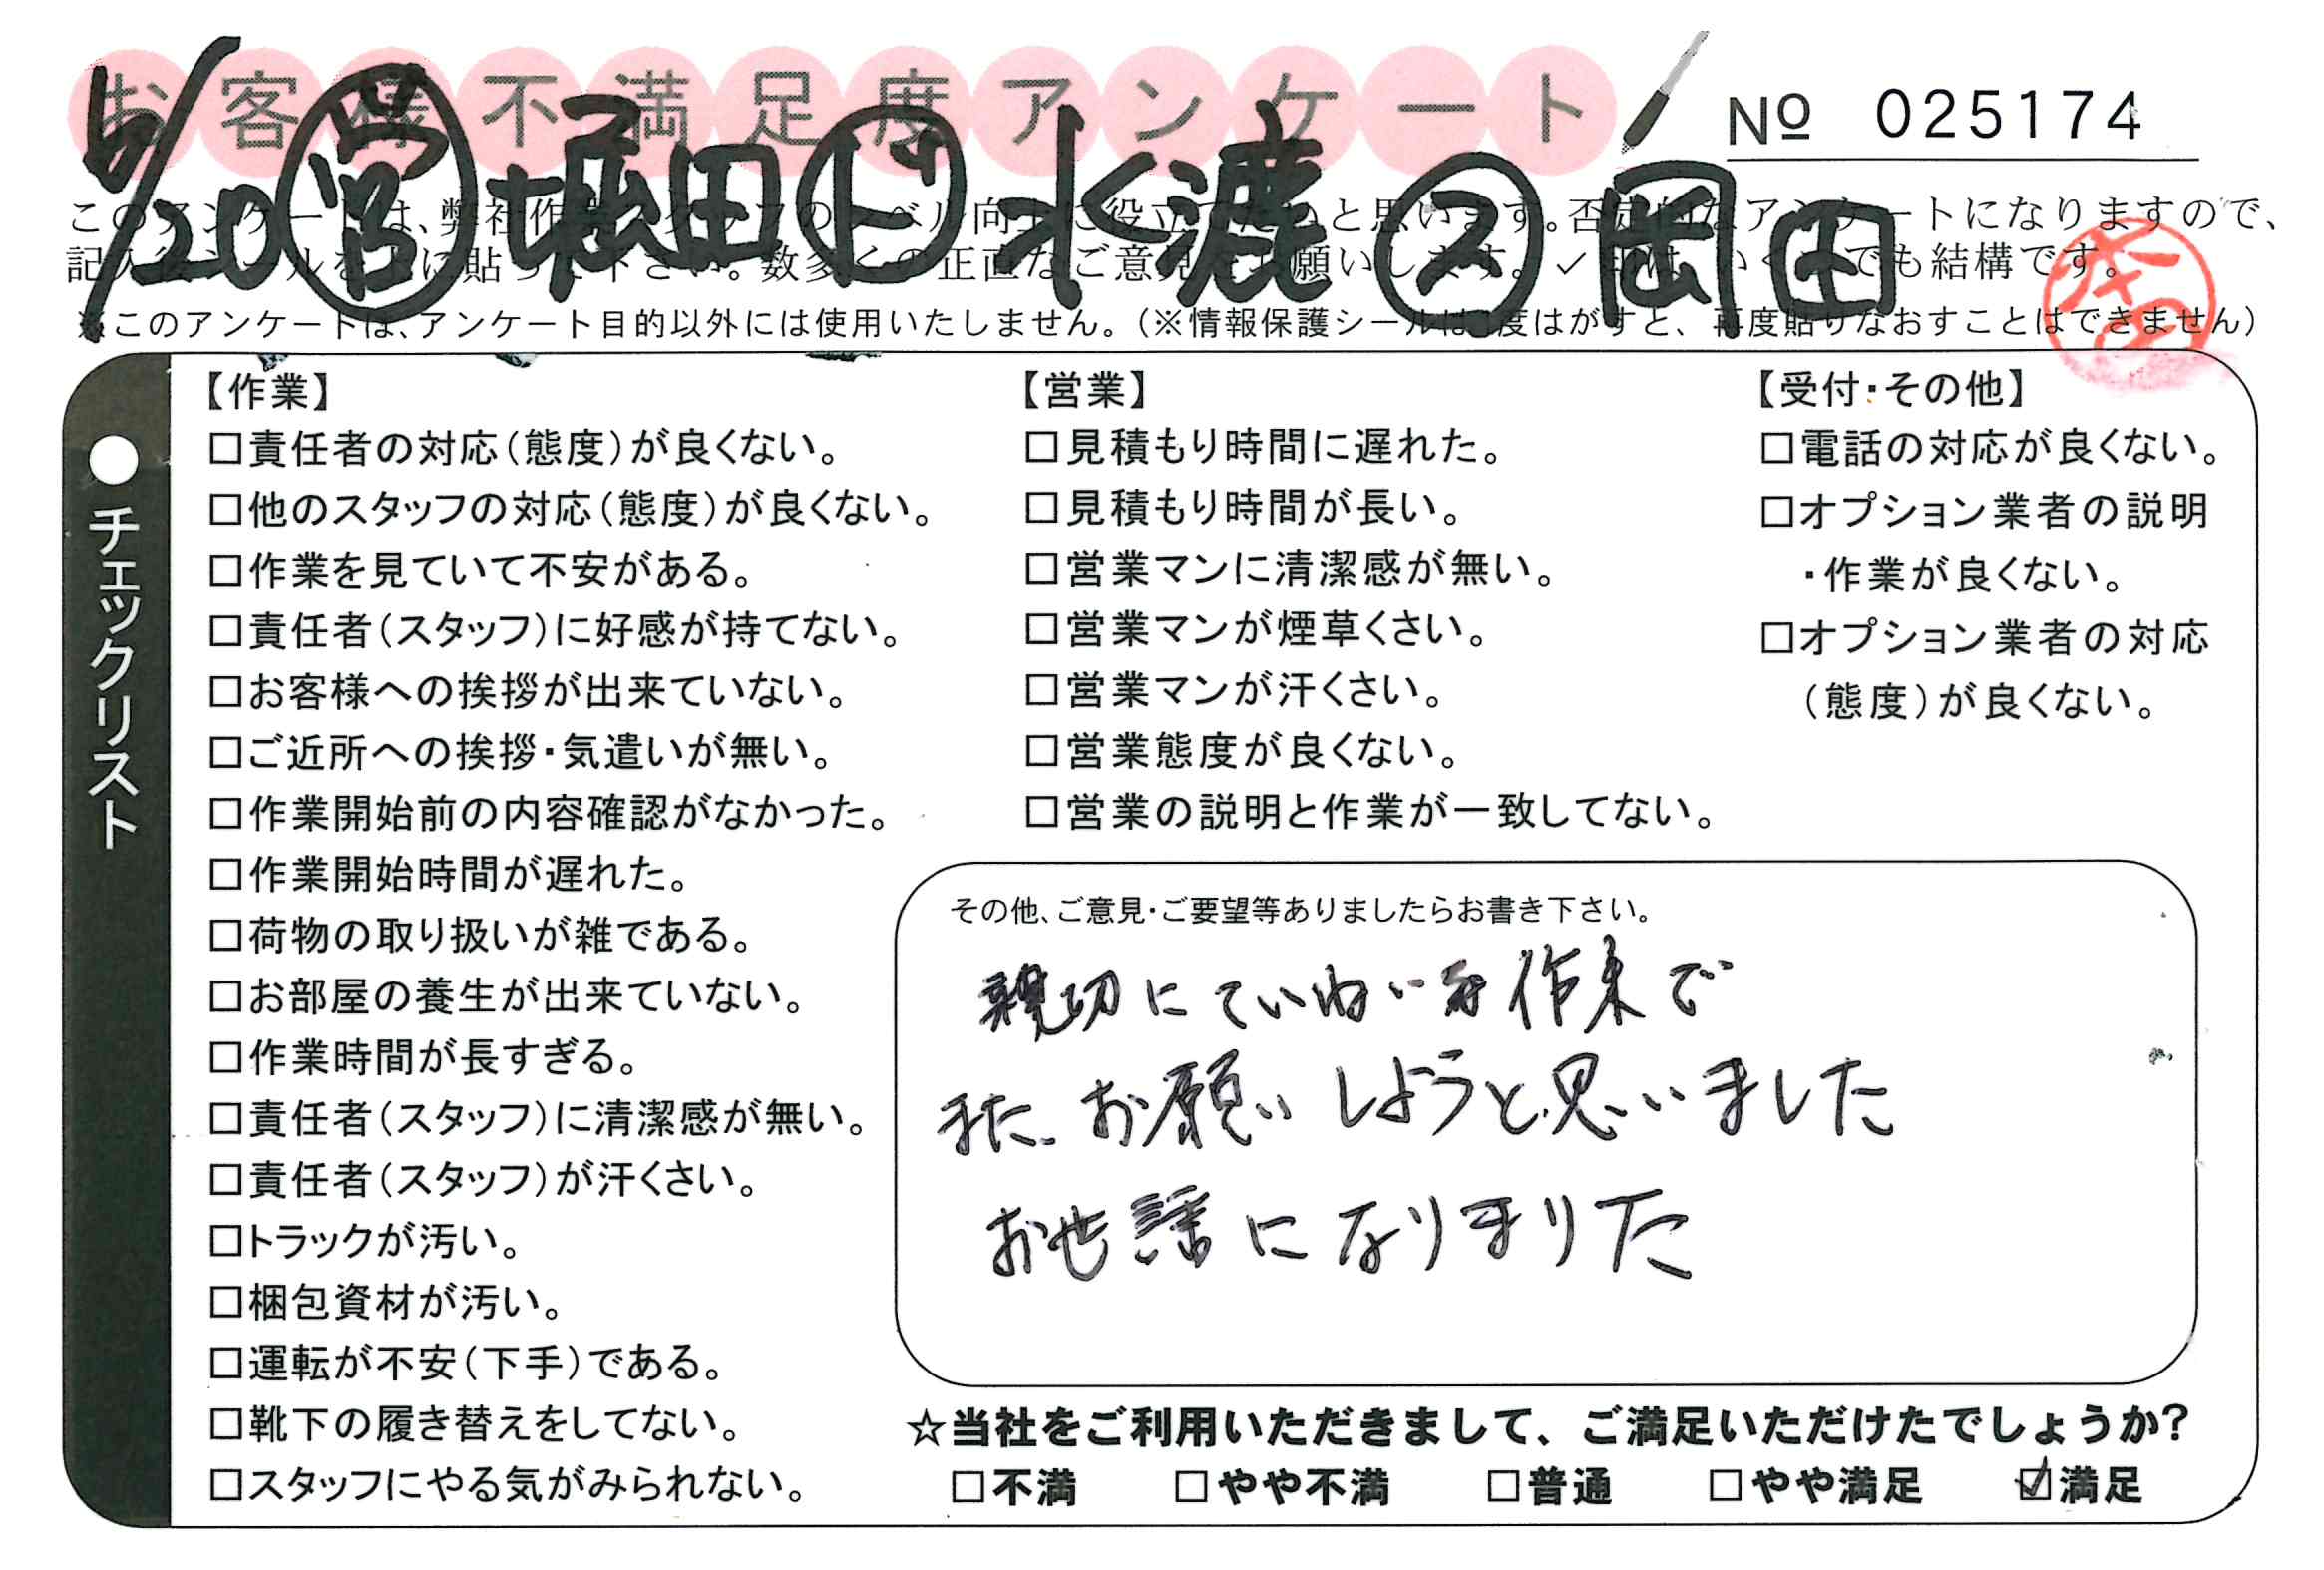 お客様不満足度アンケート
№ 025174
6/20 ㊢ 堀田 ト 水漉 ② 岡田
このアンケートは、弊社作業スタッフのレベル向上に役立てたいと思います。否定的なアンケートになりますので、
記入後シールを上に貼って下さい。数多くの正直なご意見をお願いします。✓印は、いくつでも結構です。
※このアンケートは、アンケート目的以外には使用いたしません。（※情報保護シールは1度はがすと、再度貼りなおすことはできません）
●チェックリスト
【作業】
□責任者の対応（態度）が良くない。
□他のスタッフの対応（態度）が良くない。
□作業を見ていて不安がある。
□責任者（スタッフ）に好感が持てない。
□お客様への挨拶が出来ていない。
□ご近所への挨拶・気遣いが無い。
□作業開始前の内容確認がなかった。
□作業開始時間が遅れた。
□荷物の取り扱いが雑である。
□お部屋の養生が出来ていない。
□作業時間が長すぎる。
□責任者（スタッフ）に清潔感が無い。
□責任者（スタッフ）が汗くさい。
□トラックが汚い。
□梱包資材が汚い。
□運転が不安（下手）である。
□靴下の履き替えをしてない。
□スタッフにやる気がみられない。
【営業】
□見積もり時間に遅れた。
□見積もり時間が長い。
□営業マンに清潔感が無い。
□営業マンが煙草くさい。
□営業マンが汗くさい。
□営業態度が良くない。
□営業の説明と作業が一致してない。
【受付・その他】
□電話の対応が良くない。
□オプション業者の説明
・作業が良くない。
□オプション業者の対応
（態度）が良くない。
その他、ご意見・ご要望等ありましたらお書き下さい。
親切にていねいな作業で
また、お願いしようと思いました
お世話になりました
☆当社をご利用いただきまして、ご満足いただけたでしょうか?
□不満 □やや不満 □普通 □やや満足 ☑満足